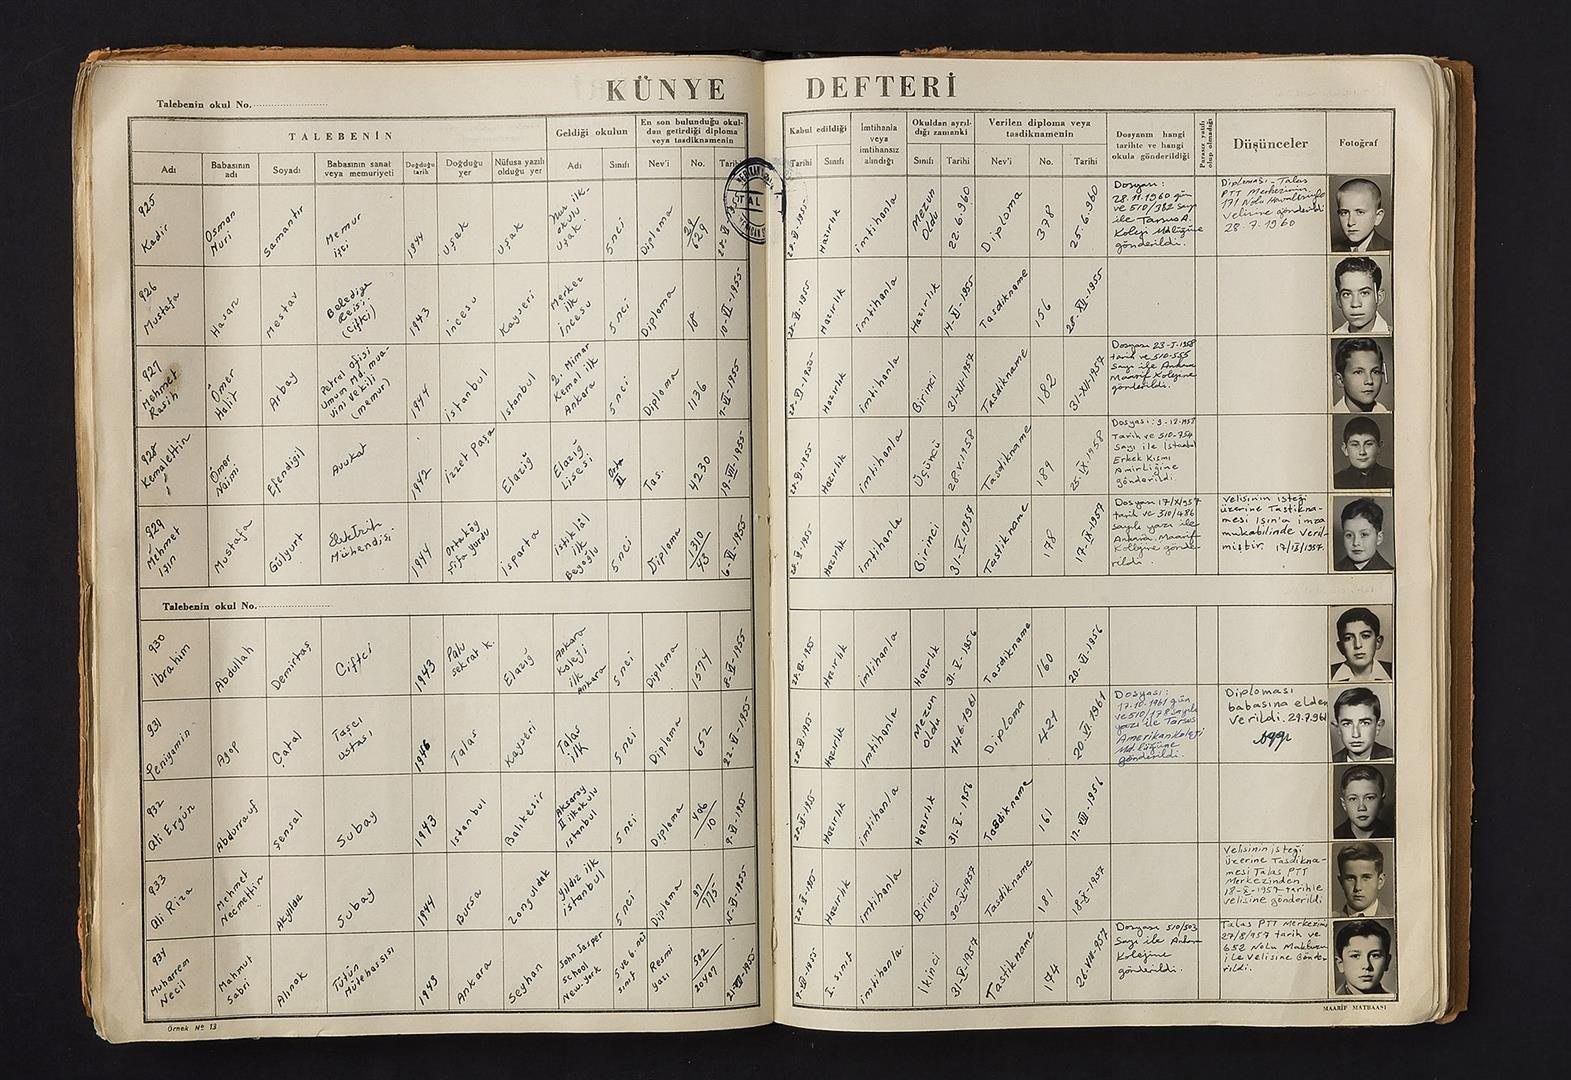 KÜNYE DEFTERİ
Talebenin okul No.
TALEBENİN
Geldiği okulun
En son bulunduğu okul-
dan getirdiği diploma
veya tasdiknamenin
Kabul edildiği
İmtihanla
veya
imtihansız
alındığı
Okuldan ayrıl-
dığı zamanki
Verilen diploma veya
tasdiknamenin
Dosyanın hangi
tarihte ve hangi
okula gönderildiği
Parasız yatılı
olup olmadığı
Düşünceler
Fotoğraf
Adı
Babasının
adı
Soyadı
Babasının sanat
veya memuriyeti
Doğduğu
tarih
Doğduğu
yer
Nüfusa yazılı
olduğu yer
Adı
Sınıfı
Nev'i
No.
Tarihi
Tarihi
Sınıfı
Sınıfı
Tarihi
Nev'i
No.
Tarihi
925
Kadir
Osman
Nuri
Samantır
Memur
işçi
1944
Uşak
Uşak
ilk-
okulu
Uşak
5 nci
Diploma
629
Hazırlık
imtihanla
Mezun
Oldu
22.6.960
Diploma
378
25.6.960
Dosyası:
28.11.1960 gün
ve 510/382 sayı
ile Tarsus A.
Koleji Müdlüğüne
gönderildi.
Diploması Talas
PTT Merkezinin
171 Nolu Havalesiyle
Velisine gönderildi
28.7.1960
926
Mustafa
Hasan
Mestav
Belediye
Reisi
(Çiftçi)
1943
İncesu
Kayseri
Merkez
ilk
İncesu
5 nci
Diploma
18
10-VI-1955
Hazırlık
imtihanla
Hazırlık
14-XI-1955
Tasdikname
156
28-XI-1955
927
Mehmet
Rasih
Ömer
Halit
Arbay
Petrol ofisi
Umum Md. mua-
vini vekili
(memur)
1944
İstanbul
İstanbul
2. Mimar
Kemal ilk
Ankara
5 nci
Diploma
1136
7-VI-1955
Hazırlık
imtihanla
Birinci
31-XII-1957
Tasdikname
182
31-XII-1957
Dosyası 23-I-1958
tarih ve 510-555
sayı ile Ankara
Maarif Kolejine
gönderildi.
928
Kemalettin
Ömer
Naimi
Efendigil
Avukat
1942
İzzet Paşa
Elazığ
Elazığ
Lisesi
Orta
II
Tas.
4230
19-VII-1955
Hazırlık
imtihanla
Üçüncü
28.V.1958
Tasdikname
189
25.IX.1958
Dosyası: 9-12-1958
Tarih ve 510-754
sayı ile İstanbul
Erkek Kısmı
Amirliğine
gönderildi
929
Mehmet
Işın
Mustafa
Gülyurt
Elektrik
Mühendisi
1944
Ortaköy
Şifa yurdu
Isparta
İstiklâl
ilk
Beyoğlu
5 nci
Diploma
1310
43
6-VI-1955
Hazırlık
imtihanla
Birinci
31-V-1957
Tastikname
178
17-IX-1957
Dosyası 17/X/957
tarih ve 510/486
sayılı yazı ile
Ankara Maarif
Kolejine gönde-
rildi.
Velisinin isteği
üzerine Tastikna-
mesi Işın'a imza
mukabilinde veril-
miştir. 17/IX/1957.
Talebenin okul No.
930
İbrahim
Abdullah
Demirtaş
Çiftci
1943
Palu
sekrat k.
Elazığ
Ankara
Koleji
ilk
Ankara
5 nci
Diploma
1574
8-VI-1955
Hazırlık
imtihanla
Hazırlık
31-V-1956
Tasdikname
160
20-VI-1956
931
Peniyamin
Agop
Çatal
Taşçı
ustası
1946
Talas
Kayseri
Talas
ilk
5 nci
Diploma
652
22-VI-1955
Hazırlık
imtihanla
Mezun
oldu
14.6.1961
Diploma
421
20.VI.1961
Dosyası:
17.10.1961 gün
ve 510/178 sayılı
yazı ile Tarsus
Amerikan Koleji
Md. lüğüne
gönderildi.
Diploması
babasına elden
verildi. 29.7.961
932
Ali Ergün
Abdurrauf
Şensal
Subay
1943
İstanbul
Balıkesir
Aksaray
II ilkokulu
İstanbul
5 nci
Diploma
406
10
9-VI-1955
Hazırlık
imtihanla
Hazırlık
31-V-1956
Tasdikname
161
17-VIII-1956
933
Ali Rıza
Mehmet
Necmettin
Akyıldız
Subay
1944
Bursa
Zonguldak
Yıldız ilk
İstanbul
5 nci
Diploma
37
773
Hazırlık
imtihanla
Birinci
30-V-1957
Tasdikname
181
18-X-1957
Velisinin isteği
üzerine Tasdikna-
mesi Talas PTT
Merkezinden
18-X-1957 tarihle
velisine gönderildi
934
Muharrem
Necil
Mahmut
Sabri
Alınak
Tütün
Mütehassısı
1943
Ankara
Seyhan
John Jasper
School
New.york
5 ve 6. ncı
sınıf
Resmi
yazı
502
20407
I. sınıf
imtihanla
İkinci
31-V-1957
Tastikname
174
26-VIII-957
Dosyası 510/503
Sayı ile Ankara
Kolejine
gönderildi.
Talas PTT Merkezinin
27/8/957 tarih ve
652 Nolu Makbuzu
ile Velisine Gönde-
rildi.
Örnek No 13
MAARİF MATBAASI